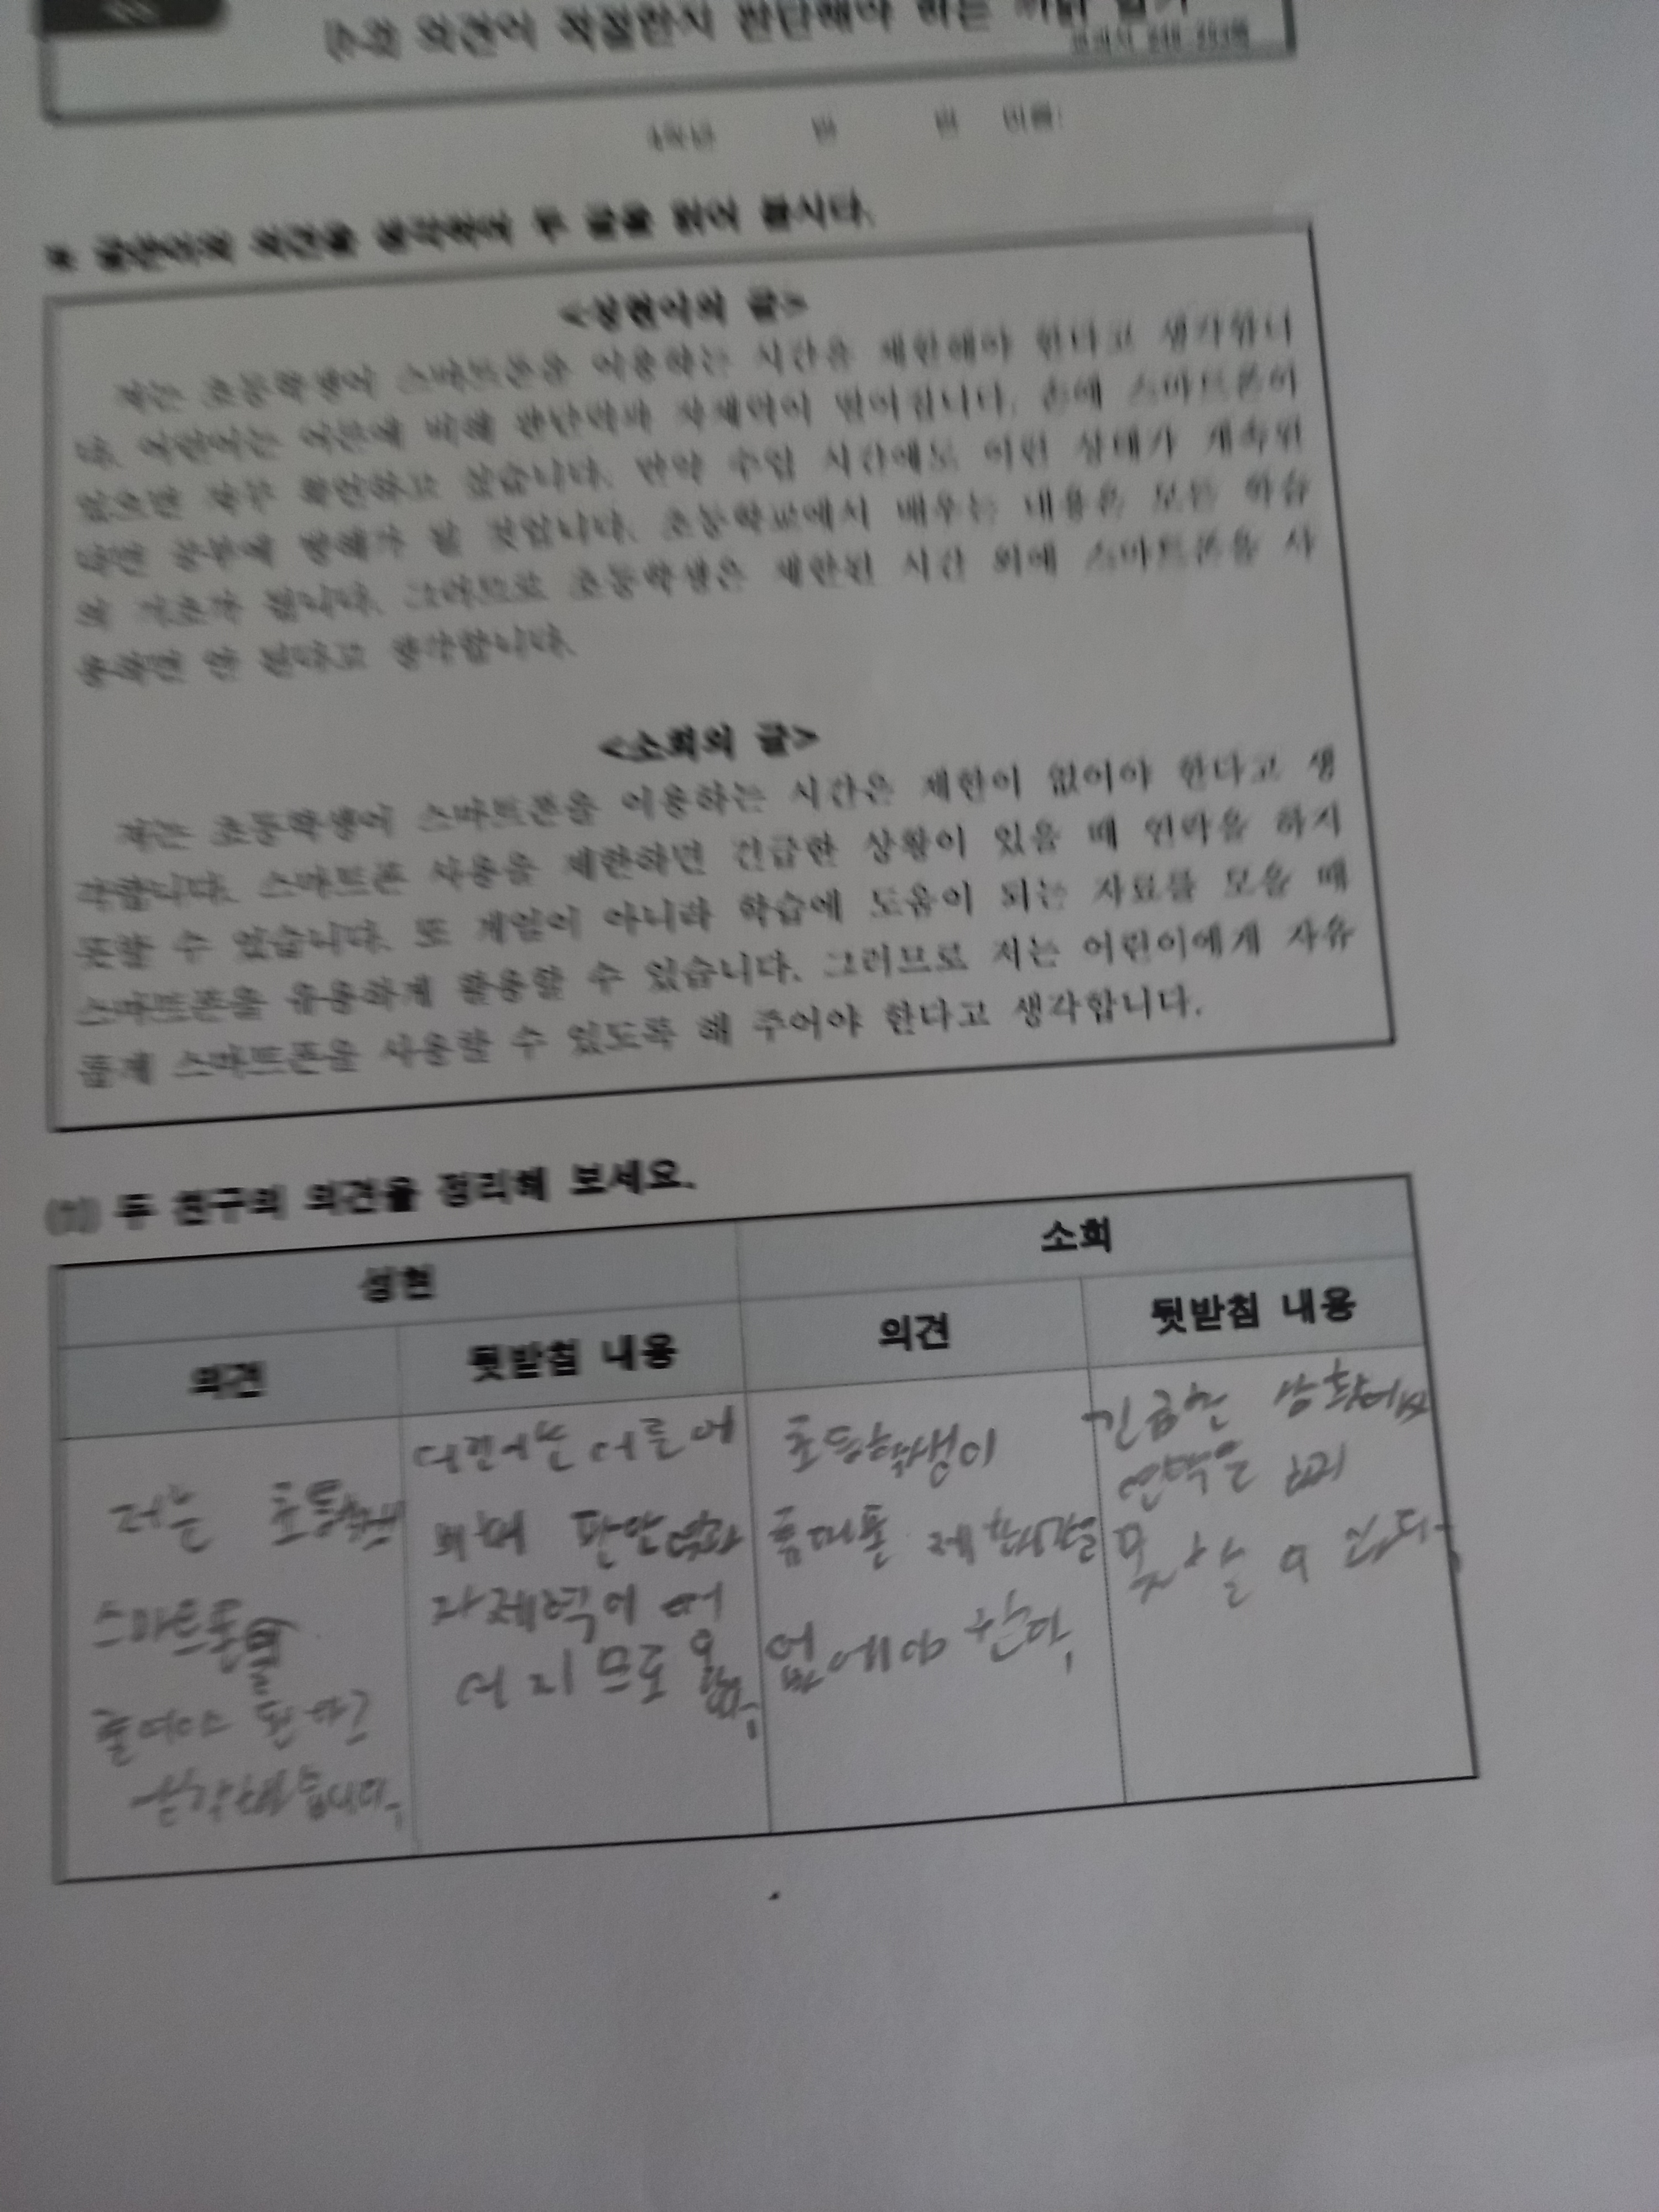 의견이 적절한지 판단해야 하는 까닭 알기
교과서
4학년 반 번 이름:
※ 글쓴이의 의견을 생각하며 두 글을 읽어 봅시다.
<성현이의 글>
저는 초등학생이 스마트폰을 이용하는 시간을 제한해야 한다고 생각합니
다. 어린이는 어른에 비해 판단력과 자제력이 떨어집니다. 손에 스마트폰이
있으면 자꾸 확인하고 싶습니다. 만약 수업 시간에도 이런 상태가 계속된
다면 공부에 방해가 될 것입니다. 초등학교에서 배우는 내용은 모든 학습
의 기초가 됩니다. 그러므로 초등학생은 제한된 시간 외에 스마트폰을 사
용하면 안 된다고 생각합니다.
<소희의 글>
저는 초등학생이 스마트폰을 이용하는 시간은 제한이 없어야 한다고 생
각합니다. 스마트폰 사용을 제한하면 긴급한 상황이 있을 때 연락을 하지
못할 수 있습니다. 또 게임이 아니라 학습에 도움이 되는 자료를 모을 때
스마트폰을 유용하게 활용할 수 있습니다. 그러므로 저는 어린이에게 자유
롭게 스마트폰을 사용할 수 있도록 해 주어야 한다고 생각합니다.
(1) 두 친구의 의견을 정리해 보세요.
성현 소희
의견 뒷받침 내용 의견 뒷받침 내용
저는
스마트폰을
줄여야 된다고
어른에
판단력과
자제력이
초등학생이
제한을
긴급한
연락을
못